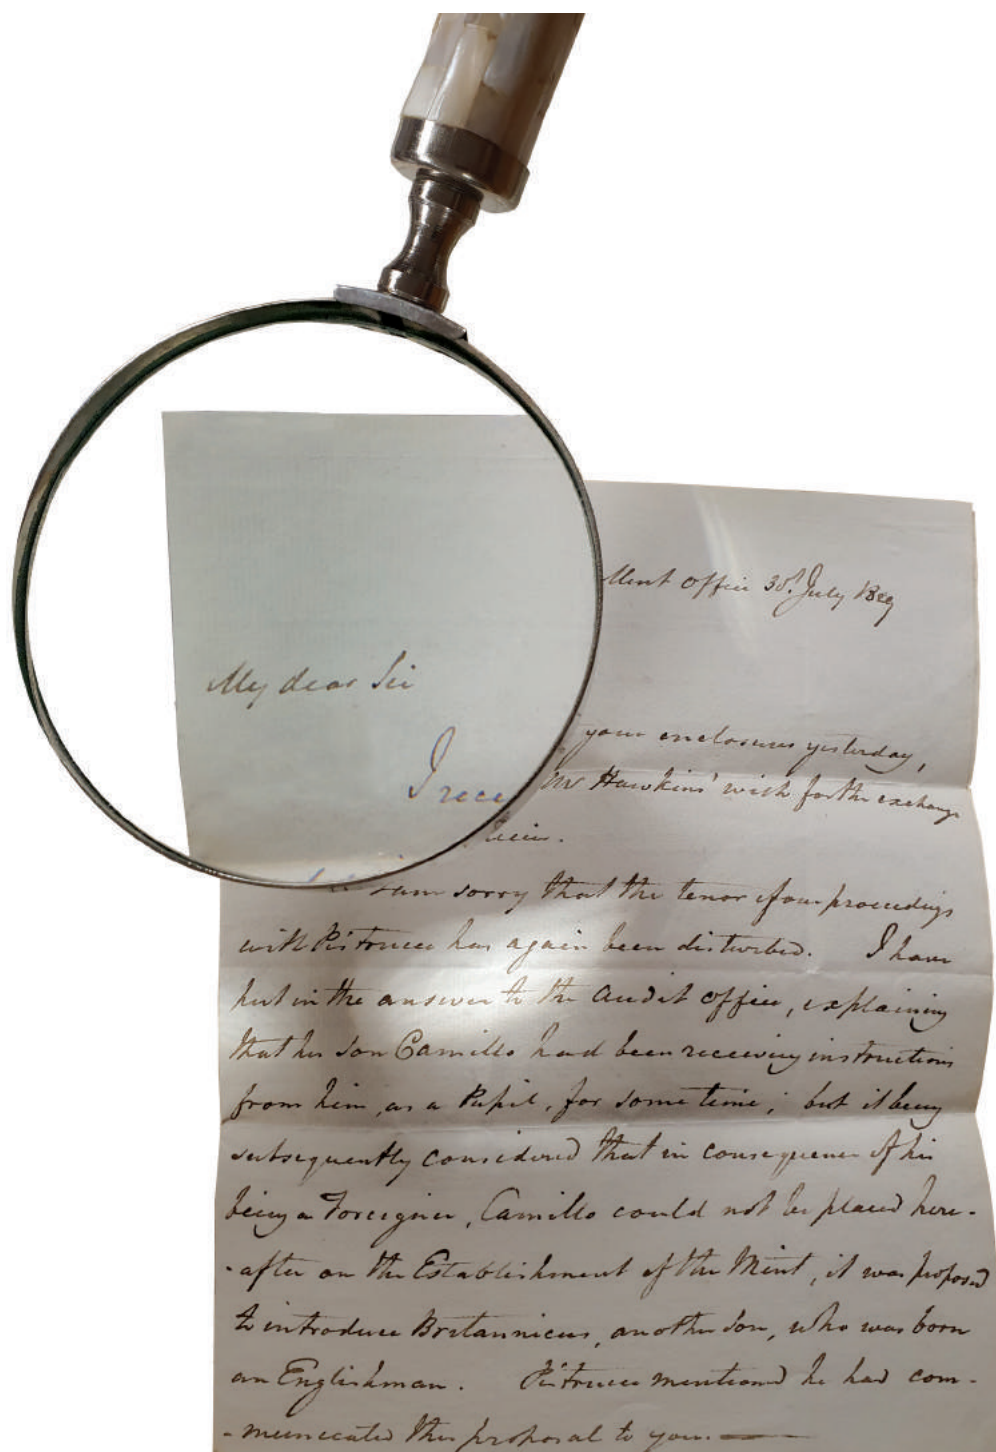 Mint Office 30th July 1829
My dear Sir
I rece
your enclosures yesterday,
Mr Hawkins' wish for the exchange
I am sorry that the tenor of our proceedings
with Pistrucci has again been disturbed. I have
put in the answer to the Audit office, explaining
that his son Camillo had been receiving instructions
from him, as a Pupil, for some time; but it being
subsequently considered that in consequence of his
being a Foreigner, Camillo could not be placed here-
-after on the Establishment of the Mint, it was proposed
to introduce Britannicus, another son, who was born
an Englishman. Pistrucci mentioned he had com-
-municated this proposal to you.